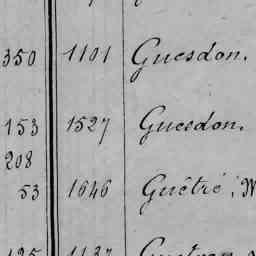 350 1101 Guesdon.
153 1527 Guesdon.
208
53 1646 Guêtré,